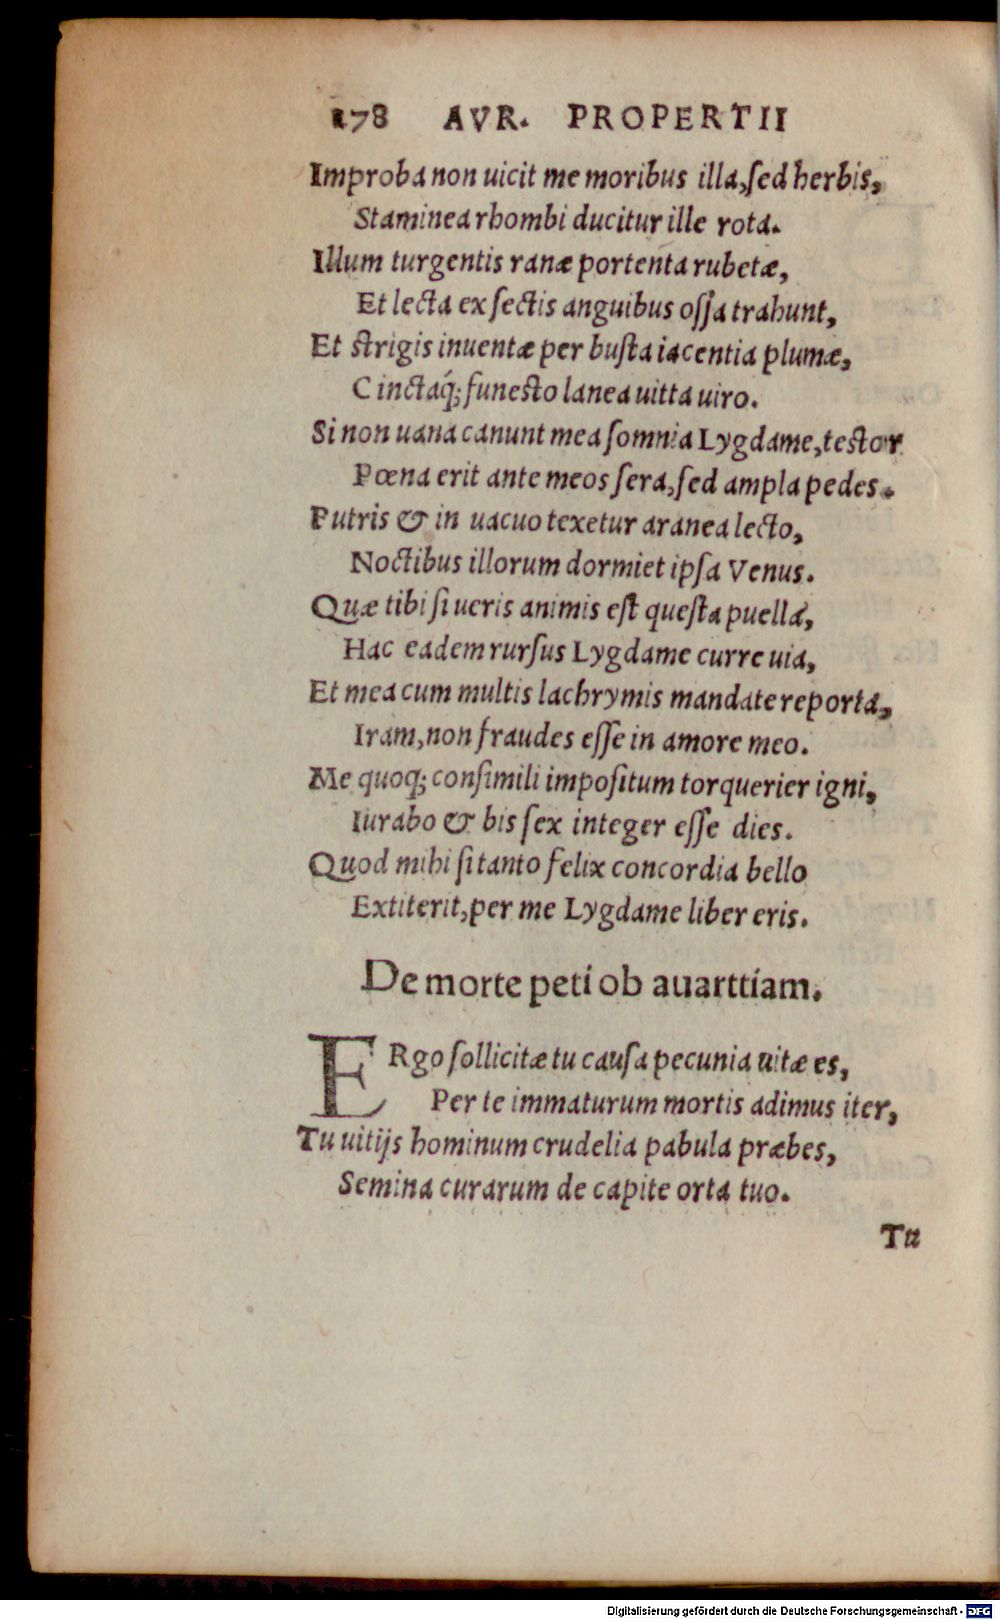 178 AVR. PROPERTII
Improba non uicit me moribus illa, ſed herbis,
Staminea rhombi ducitur ille rota.
Illum turgentis ranæ portenta rubetæ,
Et lecta ex ſectis anguibus oſſa trahunt,
Et ſtrigis inuentæ per buſta iacentia plumæ,
Cinctaq́; funesto lanea uitta uiro.
Si non uana canunt mea ſomnia Lygdame, testor
Pœna erit ante meos ſera, ſed ampla pedes.
Putris & in uacuo texetur aranea lecto,
Noctibus illorum dormiet ipſa Venus.
Quæ tibi ſi ueris animis eſt queſta puella,
Hac eadem rurſus Lygdame curre uia,
Et mea cum multis lachrymis mandate reporta,
Iram, non fraudes eſſe in amore meo.
Me quoq; conſimili impoſitum torquerier igni,
Iurabo & bis ſex integer eſſe dies.
Quod mihi ſi tanto felix concordia bello
Extiterit, per me Lygdame liber eris.
De morte peti ob auarttiam.
ERgo ſollicitæ tu cauſa pecunia uitæ es,
Per te immaturum mortis adimus iter,
Tu uitijs hominum crudelia pabula præbes,
Semina curarum de capite orta tuo.
Tu
Digitalisierung gefördert durch die Deutsche Forschungsgemeinschaft - DFG